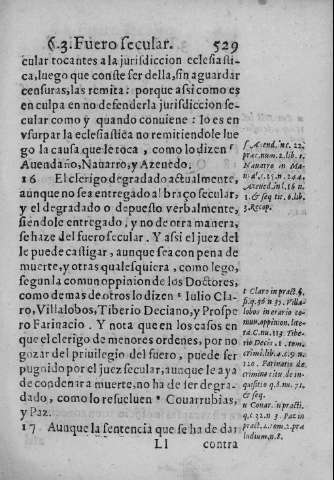 §.3. Fuero secular. 529
cular tocantes a la jurisdiccion eclesiasti-
ca, luego que conste ser della, sin aguardar
censuras, las remita: porque assi como es
en culpa en no defenderla jurisdiccion se-
cular como y quando conuiene: lo es en
vsurpar la eclesiastica no remitiendole lue
go la causa que le toca, como lo dizen ſ
Auendaño, Nauarro, y Azeuedo.
16 El clerigo degradado actualmente,
aunque no sea entregado al braço secular,
y el degradado o depuesto verbalmente,
siendole entregado, y no de otra manera,
se haze del fuero secular. Y assi el juez del
le puede castigar, aunque sea con pena de
muerte, y otras qualesquiera, como lego,
segun la comun oppinion de los Doctores,
como demas de otros lo dizen t Iulio Cla-
ro, Villalobos, Tiberio Deciano, y Prospe
ro Farinacio. Y nota que en los casos en
que el clerigo de menores ordenes, por no
gozar del priuilegio del fuero, puede ser
pugnido por el juez secular, aunque le aya
de condenar a muerte, no ha de ser degra-
dado, como lo resuelven u Couarrubias,
y Paz.
17 Aunque la sentencia que se ha de dar
Ll contra
ſ Auend. in c. 22.
præc. num. 2. lib. 1.
Nauarro in Ma-
nual. c. 25. n. 244.
Azeued. in l. 16 n
1. & seq tit. 6. lib.
3. Recop.
t Claro in pract. §,
fi. q. 36 n 35. Villa-
lobos in erario co-
mun. oppinion. lite-
ra C. nu. 113. Tibe-
rio Decia. 2. tom.
crimi. lib. 4. c. 9. n.
120. Farinacio de.
crimina titu. de in-
quisitio q. 8. nu. 71.
& seq.
u Couar. in practi.
q 32. n 3. Paz in
pract. 1. tom. 2. præ
ludium. n. 8.